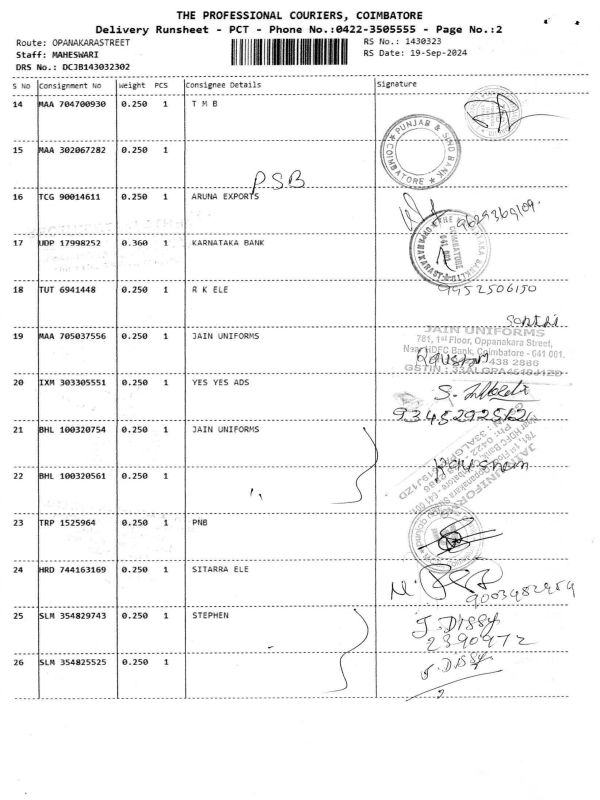 THE PROFESSIONAL COURIERS, COIMBATORE
Delivery Runsheet - PCT - Phone No.:0422-3505555 - Page No.:2
Route: OPANAKARASTREET RS No.: 1430323
Staff: MAHESWARI RS Date: 19-Sep-2024
DRS No.: DCJB143032302
S No Consignment No Weight PCS Consignee Details Signature
14 MAA 704700930 0.250 1 T M B
15 MAA 302067282 0.250 1
PUNJAB & SIND BANK
COIMBATORE
PSB
16 TCG 90014611 0.250 1 ARUNA EXPORTS
9629369109.
17 UDP 17998252 0.360 1 KARNATAKA BANK
COIMBATORE
641 001
18 TUT 6941448 0.250 1 R K ELE 9952506150
19 MAA 705037556 0.250 1 JAIN UNIFORMS
JAIN UNIFORMS
781, 1st Floor, Oppanakara Street,
Near HDFC Bank, Coimbatore - 641 001.
438 2866
20 IXM 303305551 0.250 1 YES YES ADS
21 BHL 100320754 0.250 1 JAIN UNIFORMS
JAIN UNIFORMS
22 BHL 100320561 0.250 1
23 TRP 1525964 0.250 1 PNB
24 HRD 744163169 0.250 1 SITARRA ELE
25 SLM 354829743 0.250 1 STEPHEN J. DISSY
2390972
26 SLM 354825525 0.250 1 J. DISSY